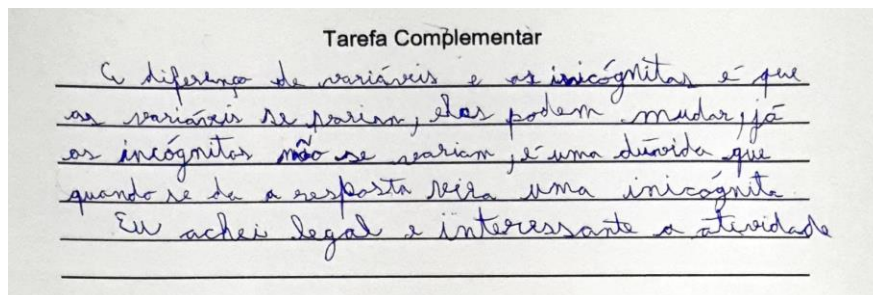 Tarefa Complementar
A diferença de variáveis e as inicógnitas é que
as variáveis se variam, elas podem mudar, já
as incógnitas não se variam, é uma dúvida que
quando se da a resposta vira uma inicógnita.
Eu achei legal e interessante a atividade